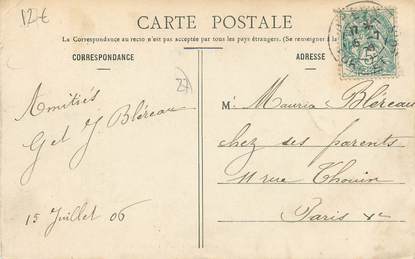 12€
CARTE POSTALE
La Correspondance au recto n'est pas acceptée par tous les pays étrangers. (Se renseigner à la
CORRESPONDANCE
ADRESSE
27
Amitiés
G et J. Bléreau
15 Juillet 06
M. Maurice Bléreau
chez ses parents
11 rue Thouin
Paris Ve